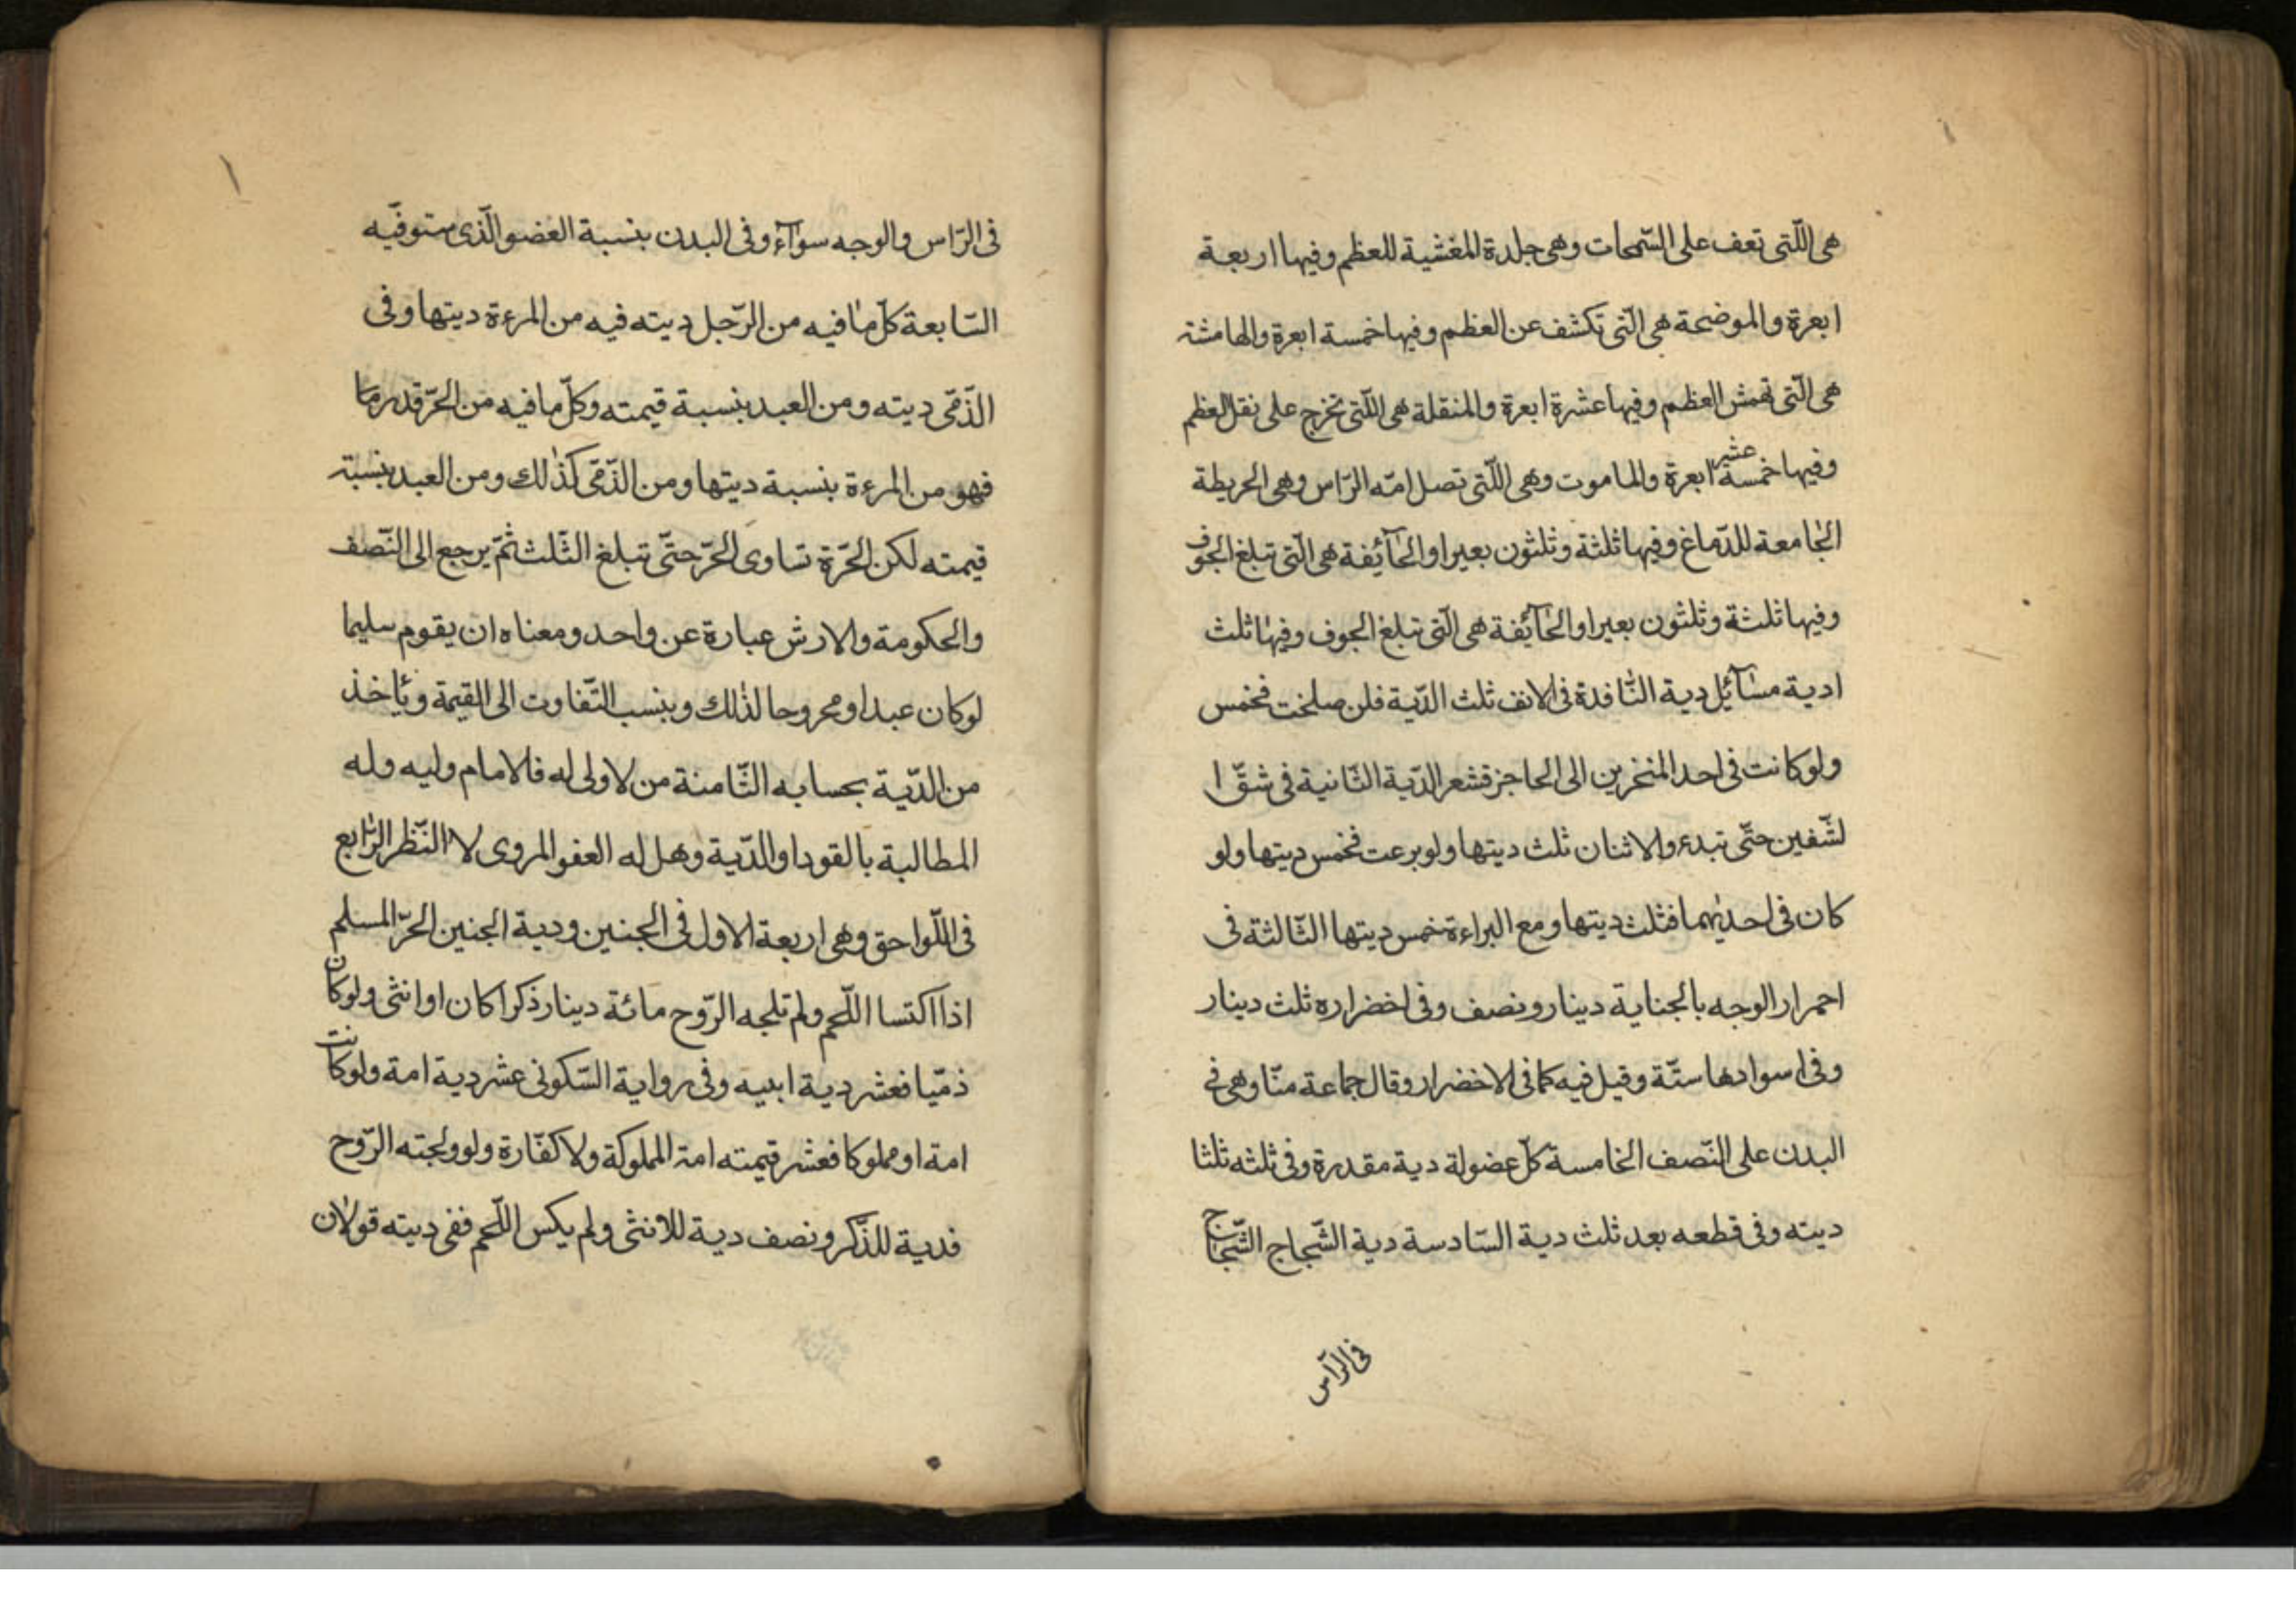 هى اللّتى تعف على السّمحات وهى جلدة المغشية للعظم وفيها اربعة
ابعرة والموضحة هى الّتى تكشف عن العظم وفيها خمسة ابعرة والهامشة
هى الّتى تهمش العظم وفيها عشرة ابعرة والمنقلة هى اللّتى تخرج على نقل العظم
وفيها خمسة عشر ابعرة والماموت وهى اللّتى تصل امّه الرّاس وهى الحريطة
الجامعة للدّماغ وفيها ثلثة وثلثون بعيرا والحآئفة هى الّتى تبلغ الجوف
وفيها ثلثة وثلثون بعيرا والحآئفة هى الّتى تبلغ الجوف وفيها ثلث
ادية مسآئل دية النّافدة فى الانف ثلث الدّية فلن صلحت فخمس
ولو كانت فى احد المنخرين الى الحاجز فشعر الدّية الثّانية فى شقّ ا
لشّفين حتّى تبدء والاثنان ثلث ديتها ولو برعت فخمس ديتها ولو
كان فى احديهما فثلث ديتها ومع البراءة خمس ديتها الثّالثة فى
احمرار الوجه بالجناية دينار ونصف وفى اخضراره ثلث دينار
وفى اسوادها ستّة وقيل فيه كما فى الاخضرار وقال جماعة منّا وهى فى
البدن على النّصف الخامسة كلّ عضولة دية مقدرة وفى ثلثه ثلثا
ديته وفى قطعه بعد ثلث دية السّادسة دية الشّجاج الشّجاج
فى الرّاس
فى الرّاس والوجه سوآء وفى البدن بنسبة العضو الّذى ستوفّيه
السّابعة كلّ ما فيه من الرّجل ديته فيه من المرءة ديتها وفى
الذّمّى ديته ومن العبد بنسبة قيمته وكلّ ما فيه من الحرّ قدر ما
فهو من المرءة بنسبة ديتها ومن الذّمّى كذلك ومن العبد بنسبة
قيمته لكن الحرّة تساوى الحرّ حتّى تبلغ الثّلث ثمّ يرجع الى النّصف
والحكومة والارش عبارة عن واحد ومعناه ان يقوم سليما
لو كان عبدا ومحروحا لذلك وينسب التّفاوت الى القيمة ويأخذ
من الدّية بحسابه الثّامنة من لا ولى له فالامام وليه وله
المطالبة بالقود او الدّية وهل له العفو المروى لا النّظر الرّابع
فى اللّواحق وهى اربعة الاول فى الجنين ودية الجنين الحرّ المسلم
اذا اكتسا اللّحم ولم تلجه الرّوح مائة دينار ذكرا كان او انثى ولو كان
ذمّيا فعشر دية ابييه وفى رواية السّكونى عشر دية امة ولو كانت
امة او مملوكا فعشر قيمته امة المملوكة ولا كفّارة ولو ولجته الرّوح
فدية للذّكر ونصف دية للانثى ولم يكس اللّحم ففى ديته قولان